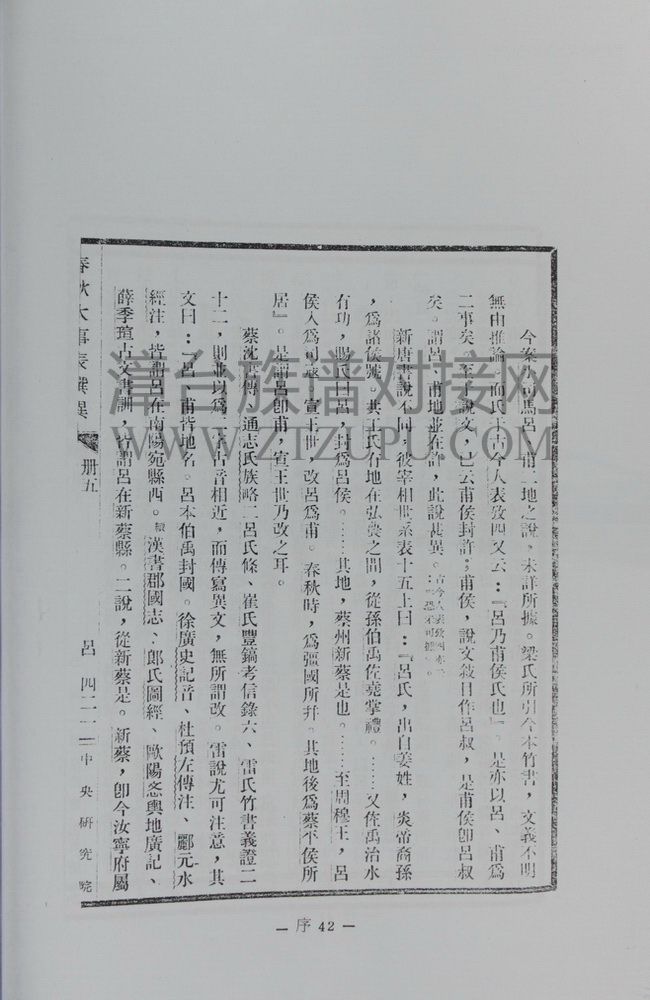 今案小司馬呂、甫二地之說，未詳所據。梁氏所引今本竹書，文義不明
無由推論。而氏于古今人表攷四又云：『呂乃甫侯氏也』。是亦以呂、甫爲
二事矣。至于說文，已云甫侯封許；甫侯，說文敍目作呂叔，是甫侯卽呂叔
矣。謂呂、甫地並在許，此說甚異。
新唐書說不同，彼宰相世系表十五上曰：『呂氏，出自姜姓，炎帝裔孫
，爲諸侯號。共工氏有地在弘農之間，從孫伯禹佐堯掌禮。……又佐禹治水
有功，賜氏曰呂，封爲呂侯。……其地，蔡州新蔡是也。……至周穆王，呂
侯入爲司寇，宣王世，改呂爲甫。春秋時，爲彊國所幷。其地後爲蔡平侯所
居』。是謂呂卽甫，宣王世乃改之耳。
蔡沈書傳、通志氏族略二呂氏條、崔氏豐鎬考信錄六、雷氏竹書義證二
十二，則並以爲二字古音相近，而傳寫異文，無所謂改。雷說尤可注意，其
文曰：『呂、甫皆地名。呂本伯禹封國。徐廣史記音、杜預左傳注、酈元水
經注，皆謂呂在南陽宛縣西。續漢書郡國志、郞氏圖經、歐陽忞輿地廣記、
薛季瑄古文書訓，皆謂呂在新蔡縣。二說，從新蔡是。新蔡，卽今汝寧府屬
春秋大事表譔異
册五
呂 四二一
中央研究院
— 序 42 —
漳台族谱对接网
WWW.ZTZUPU.COM